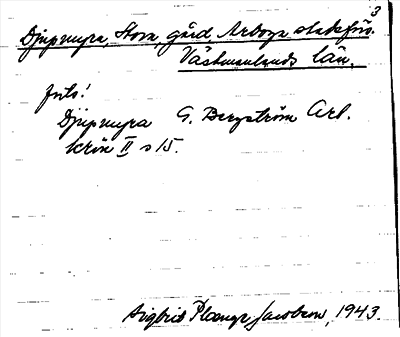 3
Djupmyra, Stora, gård, Arboga stadsförs.
Västmanlands län.
Jnls!
Djupmyra G. Bergström Arb.
krön II s 15.
Sigbrit Plænge Jacobson, 1943.